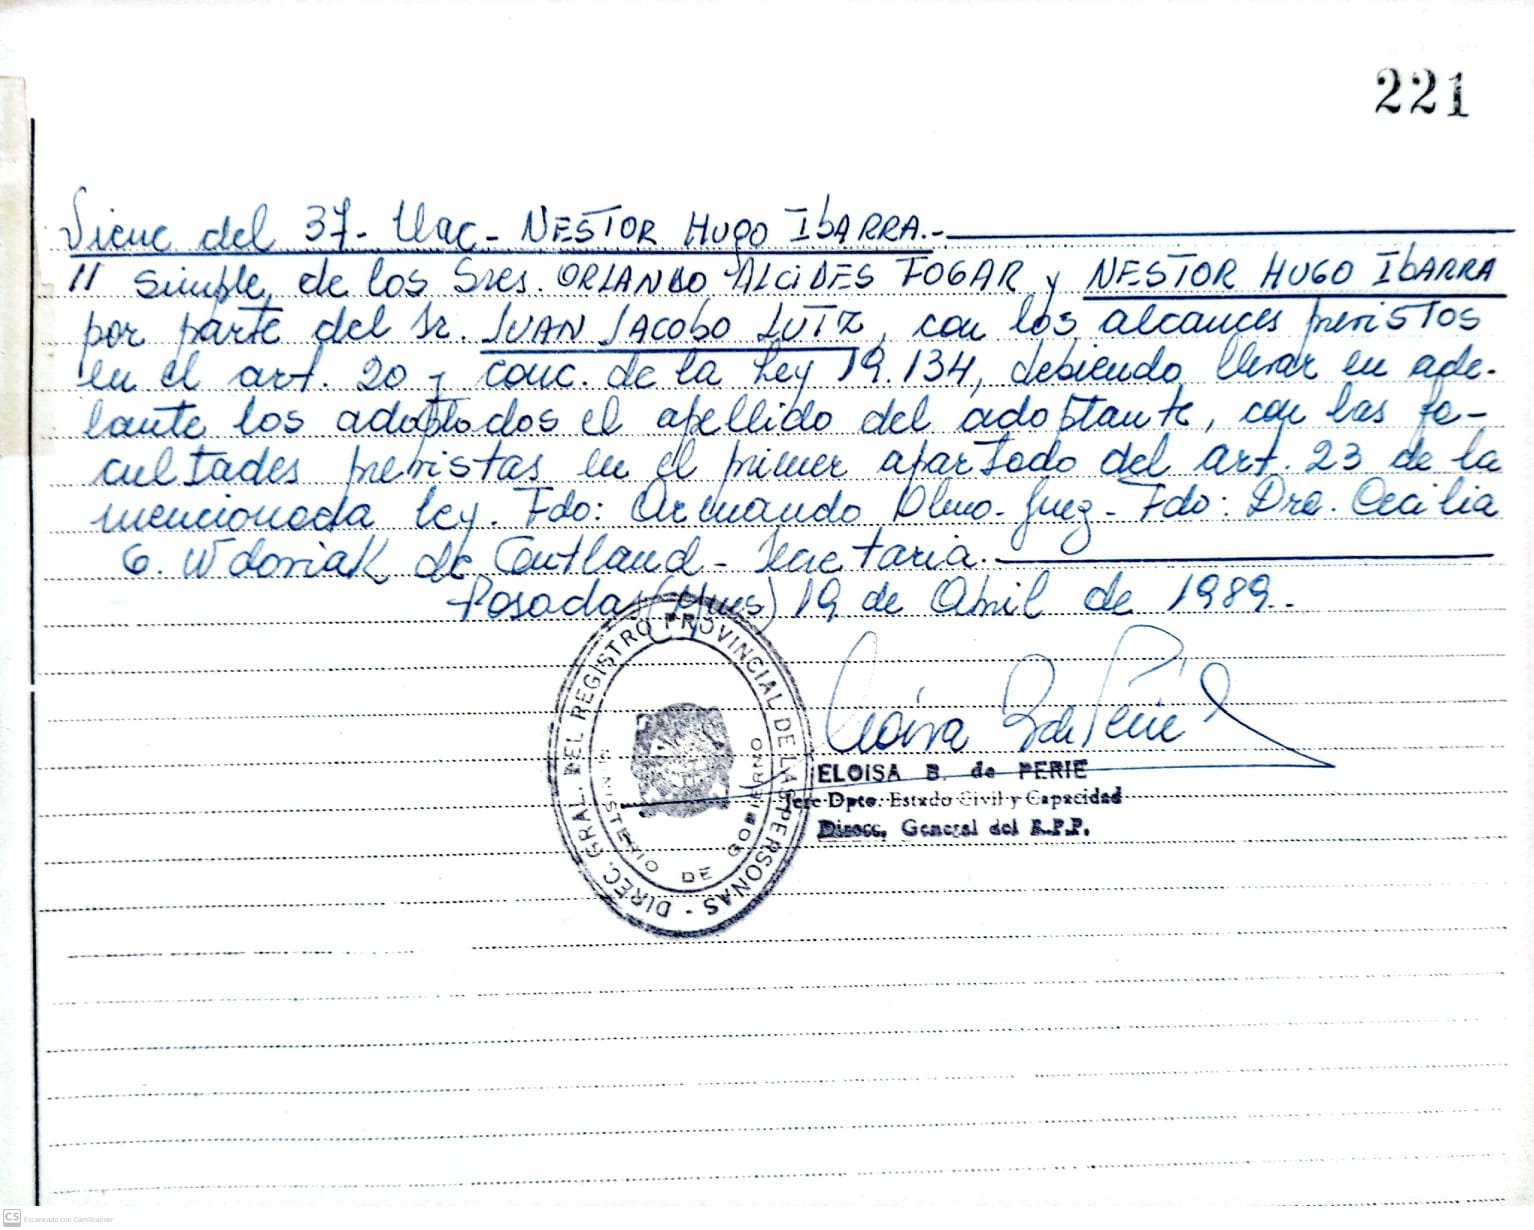 221
Viene del 37- Nac- NESTOR HUGO IBARRA.-
" Simple, de los Sres. ORLANDO ALCIDES FOGAR y NESTOR HUGO IBARRA
por parte del Sr. JUAN JACOBO LUTZ, con los alcances previstos
en el art. 20 y conc. de la Ley 19.134, debiendo llevar en ade-
lante los adoptados el apellido del adoptante, con las fa-
cultades previstas en el primer apartado del art. 23 de la
mencionada ley. Fdo: Armando Olmo. Juez - Fdo: Dra. Cecilia
G. Wdoviak de Coutland - Secretaria.
Posadas (Mnes) 19 de Abril de 1989.-
DIREC. GRAL. DEL REGISTRO PROVINCIAL DE LAS PERSONAS -
MINISTERIO DE GOBIERNO
ELOISA B. de PERIE
Jefe Dpto. Estado Civil y Capacidad
Direcc. General del R.P.P.
CS Escaneado con CamScanner